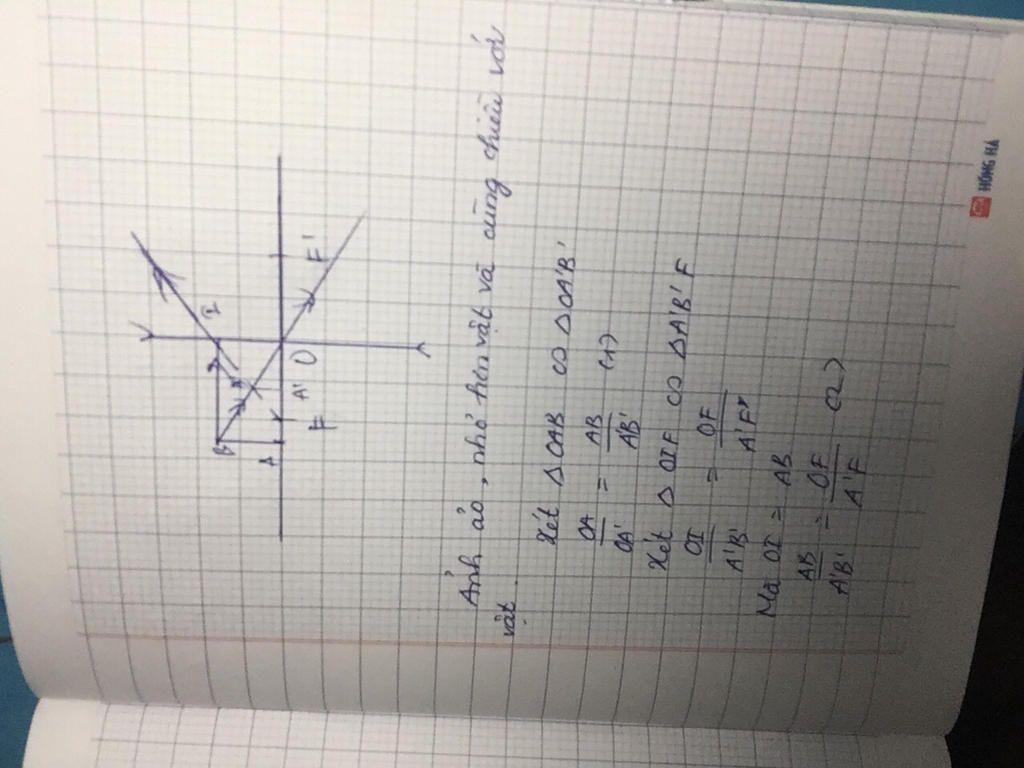 B
I
B'
A
F
A'
O
F'
Ảnh ảo, nhỏ hơn vật và cùng chiều với
vật.
Xét Δ OAB ∽ Δ OA'B'
OA/OA' = AB/A'B' (1)
Xét Δ OIF ∽ Δ A'B'F
OI/A'B' = OF/A'F
Mà OI = AB
AB/A'B' = OF/A'F (2)
HỒNG HÀ